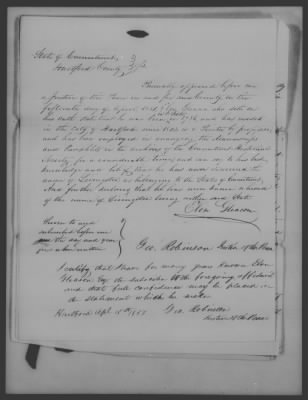 State of Connecticut }
Hartford County } ss
Personally appeared before me
a Justice of the Peace in and for said County on the
fifteenth day of April 1851 Eben Gleason who doth on
his oath state that he was born in 1786 and has resided
in the City of Hartford since 1802 is a Printer by profession
and has been employed in arranging the Manuscripts
and Pamphlets in the archives of the Connecticut Historical
Society for a considerable time, and can say to his best
knowledge and belief that he has never discovered the
name of Livingston as belonging to the State of Connecticut,
And further deposes that he has never known a friend
of the name of Livingston living within said State
Eben Gleason
Sworn to and
subscribed before me
the day and year
above written
Geo. Robinson Justice of the Peace
I certify that I have for many years known Eben
Gleason Esq the subscriber to the foregoing affidavit
and that full confidence may be placed in
the statement which he makes
Hartford Apl 15th 1851 Geo Robinson
Justice of the Peace